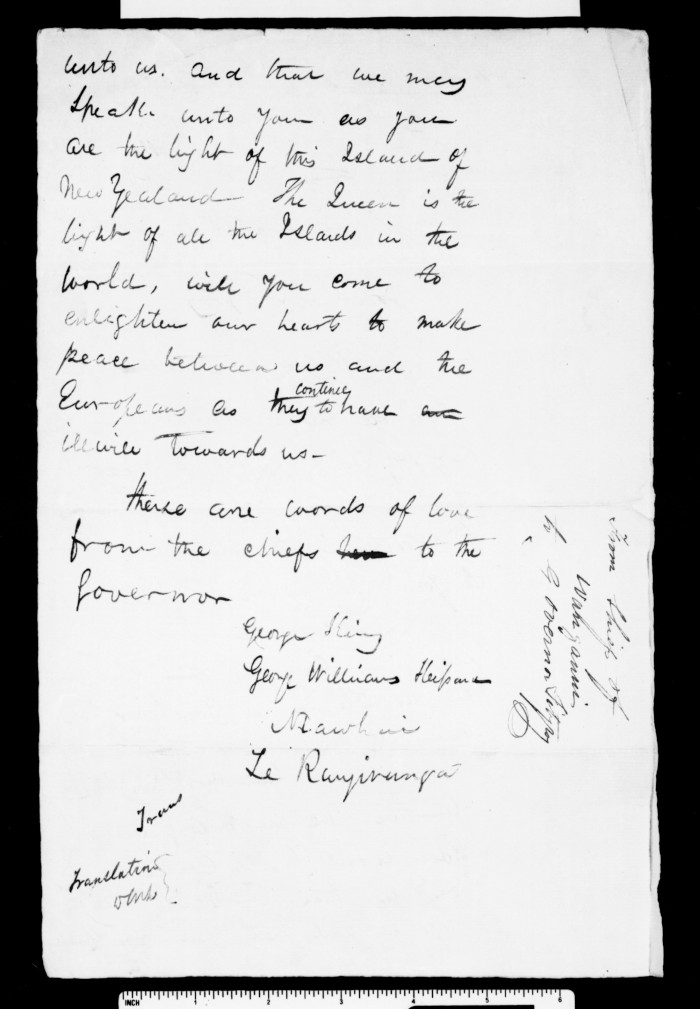 unto us. and that we may
speak unto you as you
are the light of this Island of
New Zealand The Queen is the
light of all the Islands in the
World, will you come to
enlighten our hearts to make
peace between us and the
Europeans as they continue to have
illwill towards us—
these are words of love
from the chiefs to the
Governor
George King
George Williams
Mawhai
Te Rangirunga
Trans
Translation
From Chiefs of
Wanganui
to Governor Fitzroy
INCH 1 2 3 4 5 6